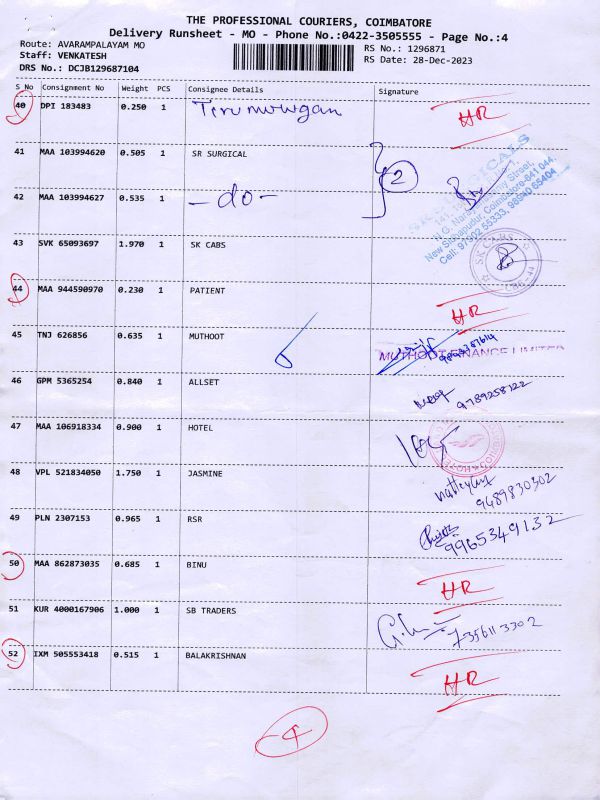 THE PROFESSIONAL COURIERS, COIMBATORE
Delivery Runsheet - MO - Phone No.:0422-3505555 - Page No.:4
Route: AVARAMPALAYAM MO
RS No.: 1296871
Staff: VENKATESH
RS Date: 28-Dec-2023
DRS No.: DCJB129687104
S No Consignment No Weight PCS Consignee Details Signature
40 DPI 183483 0.250 1 Tirumurugan HR
41 MAA 103994620 0.505 1 SR SURGICAL
2
42 MAA 103994627 0.535 1 -do-
N.G. Narayanasamy Street,
New Sidhapudur, Coimbatore-641 044.
Cell: 97902 55333, 98940 65404
43 SVK 65093697 1.970 1 SK CABS
SK CABS
CBE-44
44 MAA 944590970 0.230 1 PATIENT HR
45 TNJ 626856 0.635 1 MUTHOOT
MUTHOOT FINANCE LIMITED
46 GPM 5365254 0.840 1 ALLSET
9789258122
47 MAA 106918334 0.900 1 HOTEL
48 VPL 521834050 1.750 1 JASMINE
9489830302
49 PLN 2307153 0.965 1 RSR
9965349132
50 MAA 862873035 0.685 1 BINU HR
51 KUR 4000167906 1.000 1 SB TRADERS
7356113302
52 IXM 505553418 0.515 1 BALAKRISHNAN HR
4